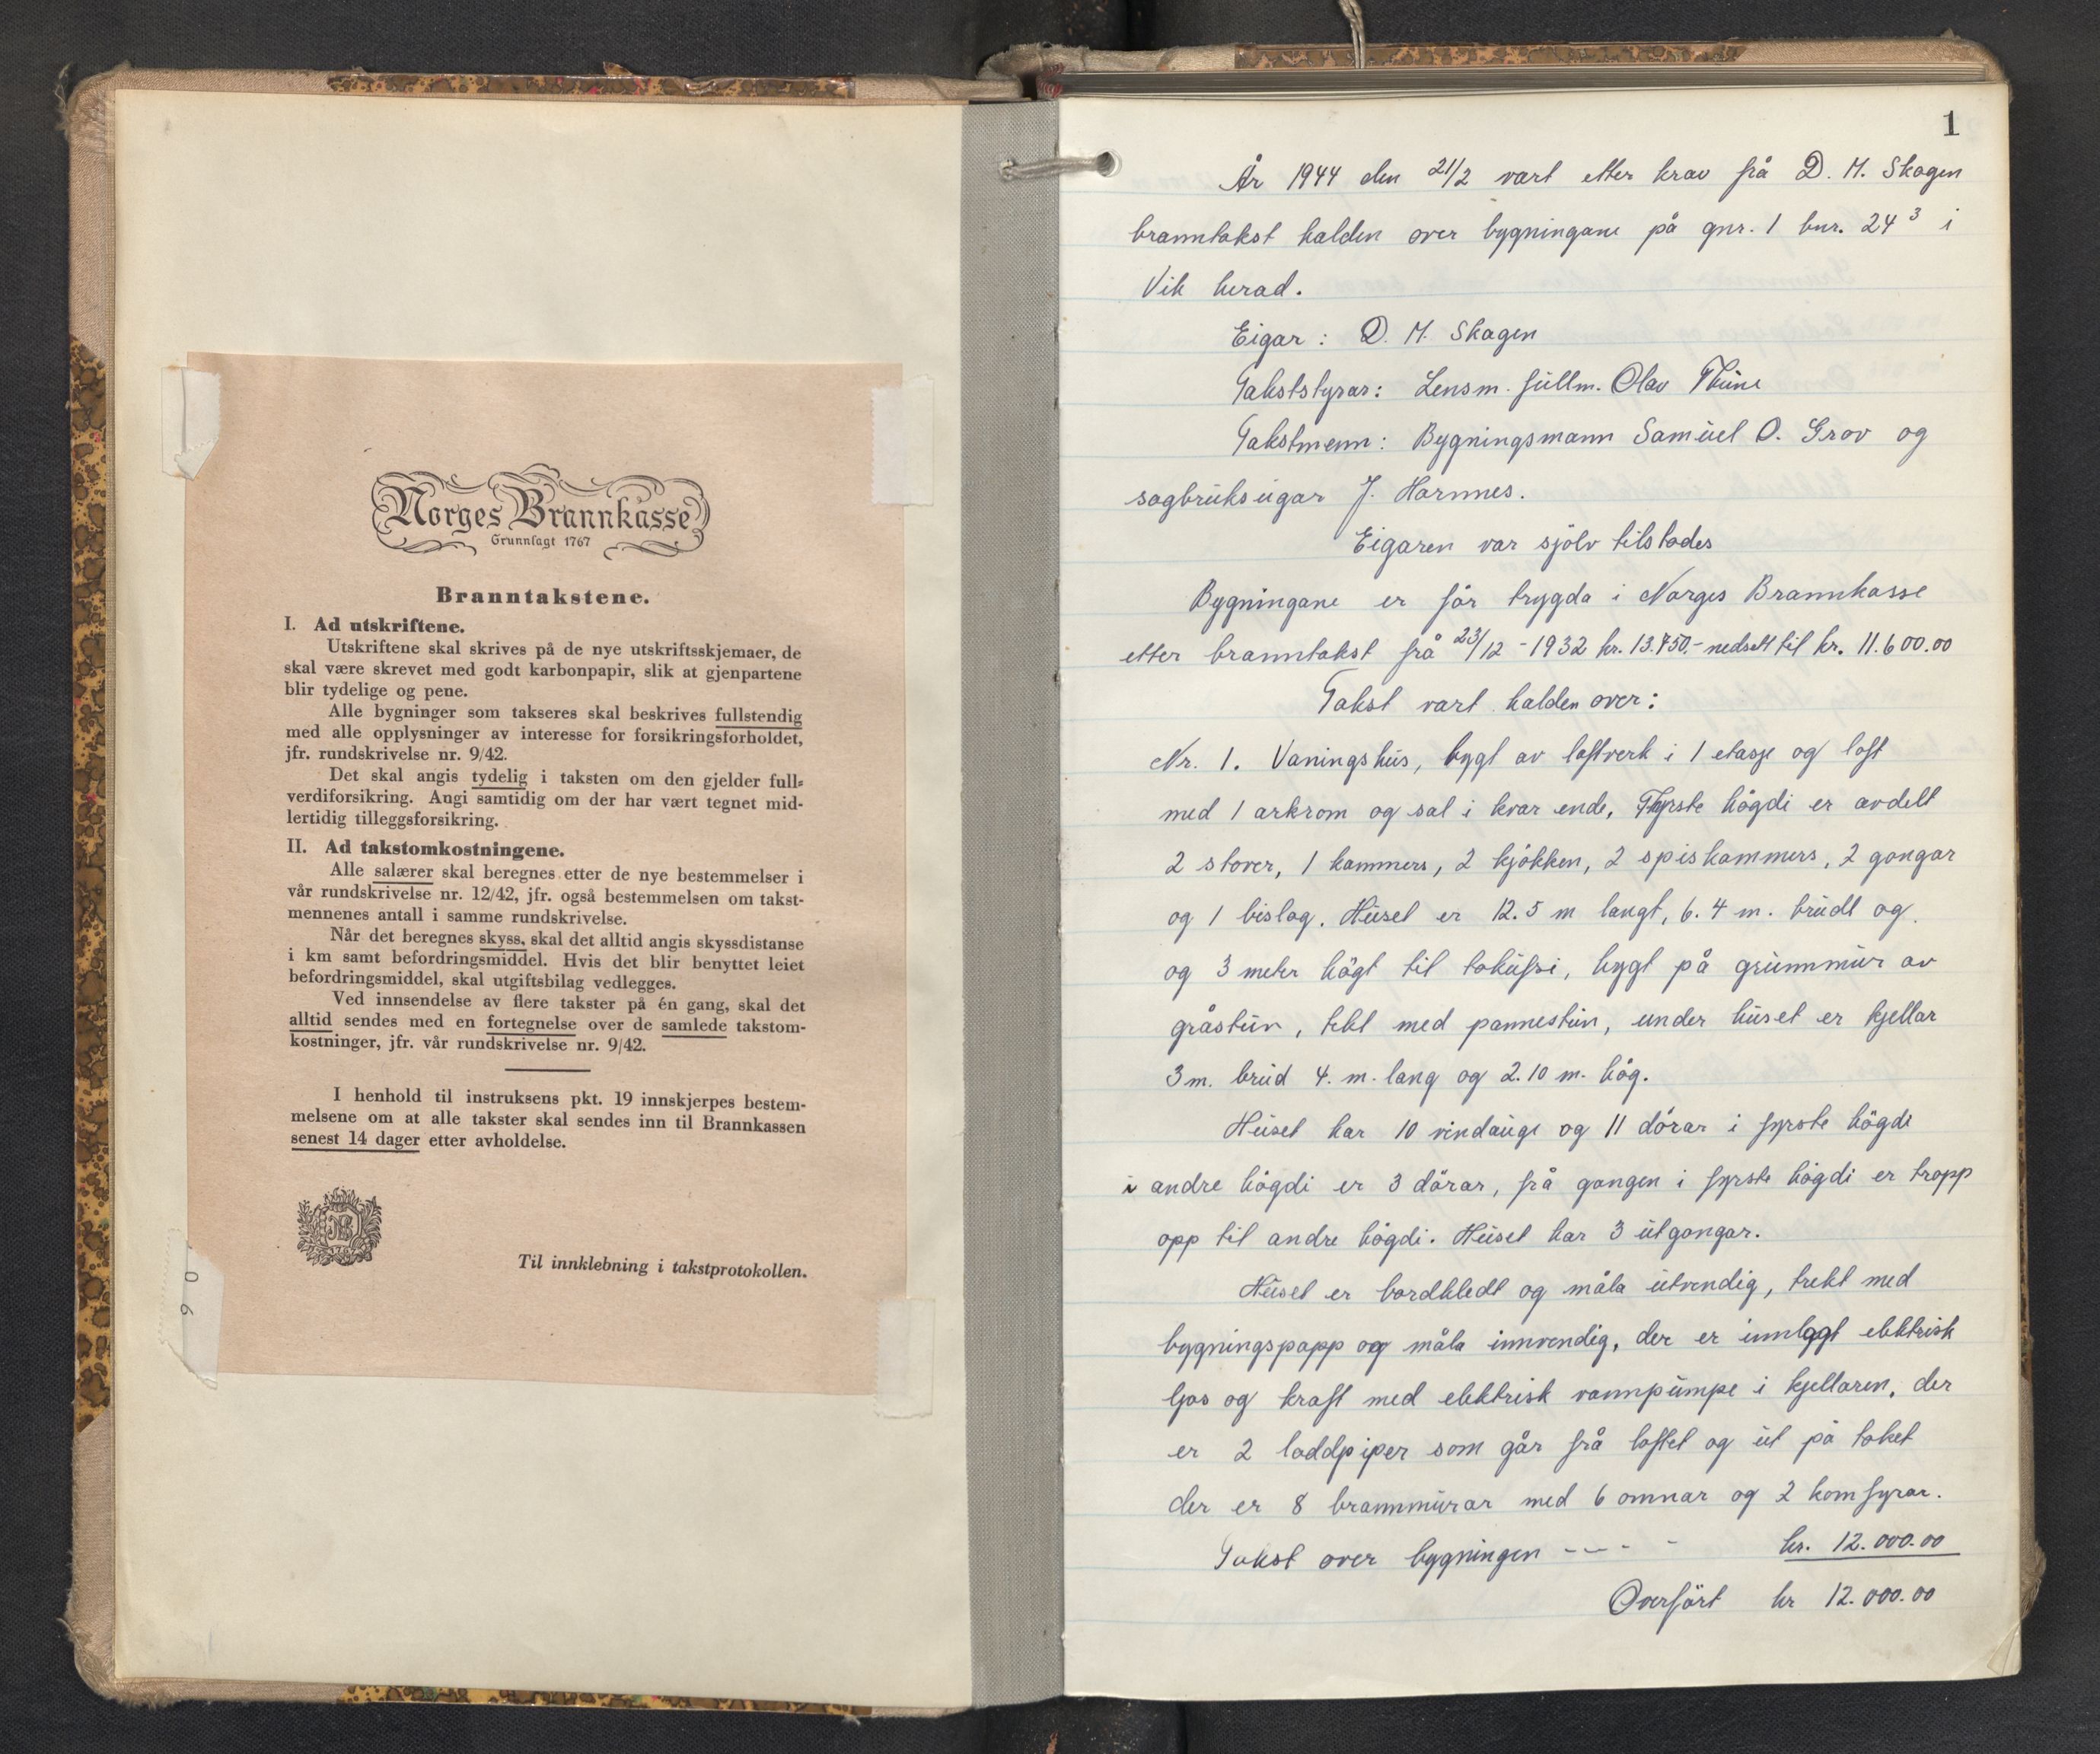 Norges Brannkasse
Grunnlagt 1767
Branntakstene.
I. Ad utskriftene.
Utskriftene skal skrives på de nye utskriftsskjemaer, de
skal være skrevet med godt karbonpapir, slik at gjenpartene
blir tydelige og pene.
Alle bygninger som takseres skal beskrives fullstendig
med alle opplysninger av interesse for forsikringsforholdet,
jfr. rundskrivelse nr. 9/42.
Det skal angis tydelig i taksten om den gjelder full-
verdiforsikring. Angi samtidig om der har vært tegnet mid-
lertidig tilleggsforsikring.
II. Ad takstomkostningene.
Alle salærer skal beregnes etter de nye bestemmelser i
vår rundskrivelse nr. 12/42, jfr. også bestemmelsen om takst-
mennenes antall i samme rundskrivelse.
Når det beregnes skyss, skal det alltid angis skyssdistanse
i km samt befordringsmiddel. Hvis det blir benyttet leiet
befordringsmiddel, skal utgiftsbilag vedlegges.
Ved innsendelse av flere takster på én gang, skal det
alltid sendes med en fortegnelse over de samlede takstom-
kostninger, jfr. vår rundskrivelse nr. 9/42.
I henhold til instruksens pkt. 19 innskjerpes bestem-
melsene om at alle takster skal sendes inn til Brannkassen
senest 14 dager etter avholdelse.
Til innklebning i takstprotokollen.
1
År 1944 den 21/2 vart etter krav frå D. M. Skagen
branntakst halden over bygningane på gnr. 1 bnr. 24³ i
Vik herad.
Eigar: D. M. Skagen
Takststyrar: Lensm. fullm. Olav Thune
Takstmenn: Bygningsmann Samuel O. Grov og
sagbrukseigar J. Hamnes.
Eigaren var sjölv tilstades
Bygningane er för trygda i Norges Brannkasse
etter branntakst frå 23/12 - 1932 kr. 13.750.- nedsett til kr. 11.600.00
Takst vart halden over:
Nr. 1. Vaningshus, bygt av loftverk i 1 etasje og loft
med 1 arkrom og sal i kvar ende. Fyrste högdi er avdelt
2 stover, 1 kammers, 2 kjökken, 2 spiskammers, 2 gangar
og 1 bislag. Huset er 12.5 m langt, 6.4 m. breidt og
og 3 meter högt til takufsi, bygt på grunnmur av
gråstein, tekt med pannestein, under huset er kjellar
3 m. breid 4. m. lang og 2.10 m. hög.
Huset har 10 vindauge og 11 dörar i fyrste högdi
i andre högdi er 3 dörar, frå gangen i fyrste högdi er trapp
opp til andre högdi. Huset har 3 utgangar.
Huset er bordkledt og måla utvendig, trekt med
bygningspapp og måla innvendig, der er innlagt elektrisk
ljos og kraft med elektrisk vannpumpe i kjellaren, der
er 2 loddpiper som går frå loftet og ut på taket
der er 8 brannmurar med 6 omnar og 2 komfyrar.
Takst over bygningen - - - - kr. 12.000.00
Overfört kr 12.000.00